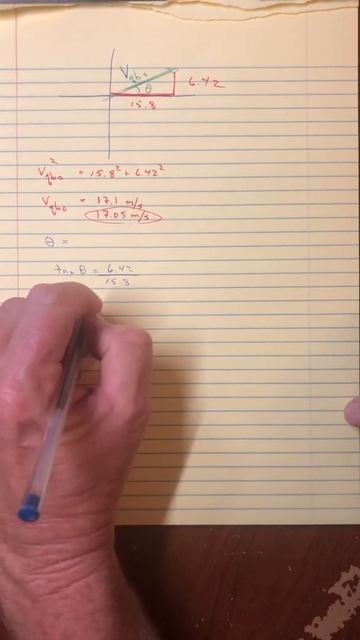 Vqb₀
θ
6.42
15.8
Vqb₀² = 15.8² + 6.42²
Vqb₀ = 17.1 m/s
17.05 m/s
θ =
tan θ = 6.42
15.8